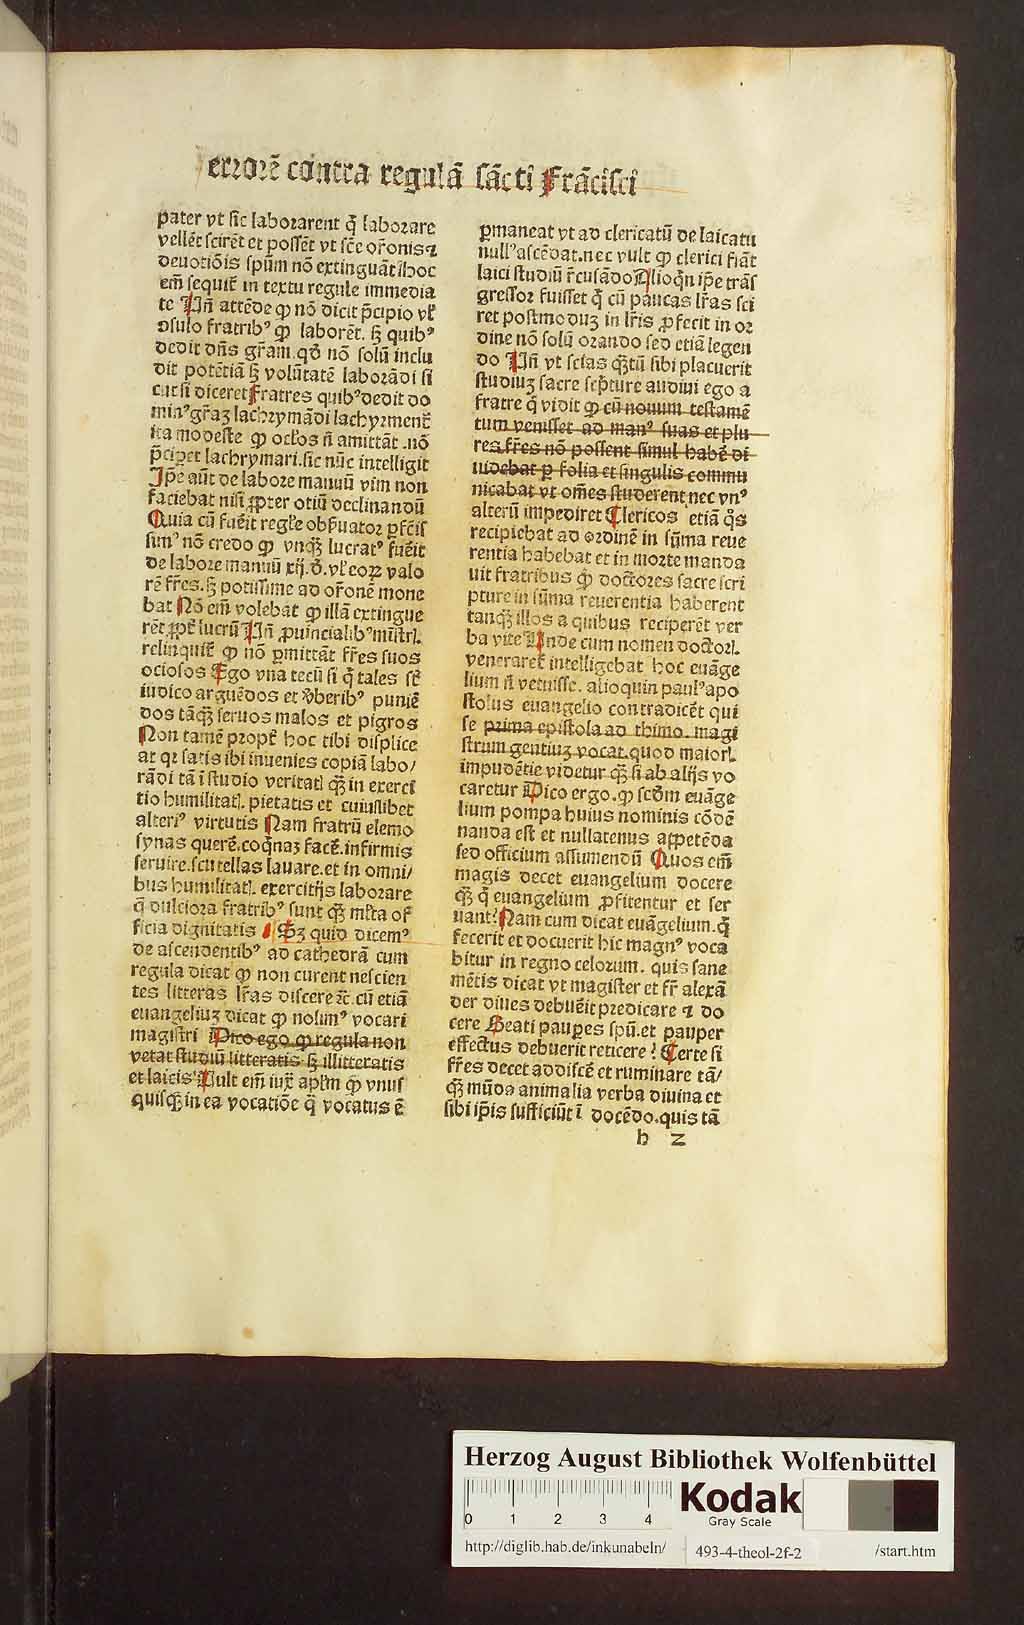 errorē contra regulā sācti Frācisci
pater vt sic laborarent q̄ laborare
vellēt scirēt et possēt vt scē orōnis ⁊
deuotiōis spūm nō extinguāt ı hoc
em̄ sequit̄ in textu regule immedia
te Un̄ attēde ꝙ nō dicit p̄cipio vł
ↄsulo fratribꝰ ꝙ laborēt. sꝫ quibꝰ
dedit dn̄s gr̄am. qđ nō solū inclu
dit potētiā sꝫ volūtatē laborādi si
cut si diceret Fratres quibꝰ dedit do
minꝰ gr̄aꝫ lachrymādi lachyrment̄
ita modeste ꝙ ocłos n̄ amittāt .nō
p̄cipet lachrymari. sic nūc intelligit
Ip̄e aūt de labore manuū vim non
faciebat nisi ꝓpter otiū declinandū
Quia cū fuēit regłe obẜuator ꝑfc̄is
simꝰ nō credo ꝙ vnq̄ꝫ lucratꝰ fuēit
de labore manuū xij. đ. vł eoꝝ valo
rē fr̄es. sꝫ potissime ad orōnē mone
bat Nō em̄ volebat ꝙ illā extingue
rēt ꝓpt̄ lucrū Un̄ ꝓuincialibꝰ mīstrꝭ.
relinquit̄ ꝙ nō ꝑmittāt fr̄es suos
ociosos Ego vna tecū si q̄ tales st̄
iudico arguēdos et v̄beribꝰ puniē
dos tāq̄ꝫ seruos malos et pigros
Non tamē propt̄ hoc tibi displice
at qꝛ satis ibi inuenies copiā labo/
rādi tā ī studio veritatꝭ q̄ꝫ in exerci
tio humilitatꝭ. pietatis et cuiuslibet
alteriꝰ virtutis Nam fratrū elemo
synas querē. coq̄naꝫ facē. infirmis
seruire. scutellas lauare. et in omni/
bus humilitatꝭ. exercitijs laborare
q̄ dulciora fratribꝰ sunt q̄ꝫ młta of
ficia dignitatis Sꝫ quid dicemꝰ
de ascendentibꝰ ad cathedrā cum
regula dicat ꝙ non curent nescien
tes litteras lr̄as discere ⁊c. cū etiā
euangeliuꝫ dicat ꝙ nolimꝰ vocari
magistri Dico ego ꝙ regula non
vetat studiū litteratis sꝫ illitteratis
et laicis Uult em̄ iux̄ apłm ꝙ vnus
quisq̄ꝫ in ea vocatiōe q̄ vocatus ē
ꝑmaneat vt ad clericatū de laicatu
nullꝰ ascēdat. nec vult ꝙ clerici fiāt
laici studiū r̄cusādo Alioqn̄ ip̄e trās
gressor fuisset q̄ cū paucas lr̄as sci
ret postmoduꝫ in lr̄is ꝓfecit in or
dine nō solū orando sed etiā legen
do Un̄ vt scias q̄ꝫtū sibi placuerit
studiuꝫ sacre scp̄ture audiui ego a
fratre q̄ vidit ꝙ cū nouum testamē
tum venisset ad manꝰ suas et plu
res fr̄es nō possent simul habē di
uidebat ꝑ folia et singulis commu
nicabat vt om̄es studerent nec vnꝰ
alterū impediret Clericos etiā q̊s
recipiebat ad ordinē in sūma reue
rentia habebat et in morte manda
uit fratribus ꝙ doctores sacre scri
pture in sūma reuerentia haberent
tanq̄ꝫ illos a quibus reciperēt ver
ba vite Unde cum nomen doctorꝭ.
veneraret̄ intelligebat hoc euāge
lium n̄ vetuisse. alioquin paulꝰ apo
stolus euangelio contradicēt qui
se prima epistola ad thimo. magi
strum gentiuꝫ vocat. quod maiorꝭ.
impudētie videtur q̄ꝫ si ab alijs vo
caretur Dico ergo. ꝙ scđm euāge
lium pompa huius nominis cōdē
nanda est et nullatenus appetēda
sed officium assumendū Quos em̄
magis decet euangelium docere
q̄ꝫ q̄ euangelium ꝓfitentur et ser
uant? Nam cum dicat euāgelium. q̄
fecerit et docuerit hic magnꝰ voca
bitur in regno celorum. quis sane
mētis dicat vt magister et fr̄ alexā
der diues debuēit predicare ⁊ do
cere Beati pauꝑes spū. et pauper
effectus debuerit reticere? Certe si
fr̄es decet addiscē et ruminare tā/
q̄ꝫ mūda animalia verba diuina et
sibi ip̄is sufficiūt ī docēdo. quis tā
h 2
Herzog August Bibliothek Wolfenbüttel
0 1 2 3 4
Kodak
Gray Scale
http://diglib.hab.de/inkunabeln/ 493-4-theol-2f-2 /start.htm